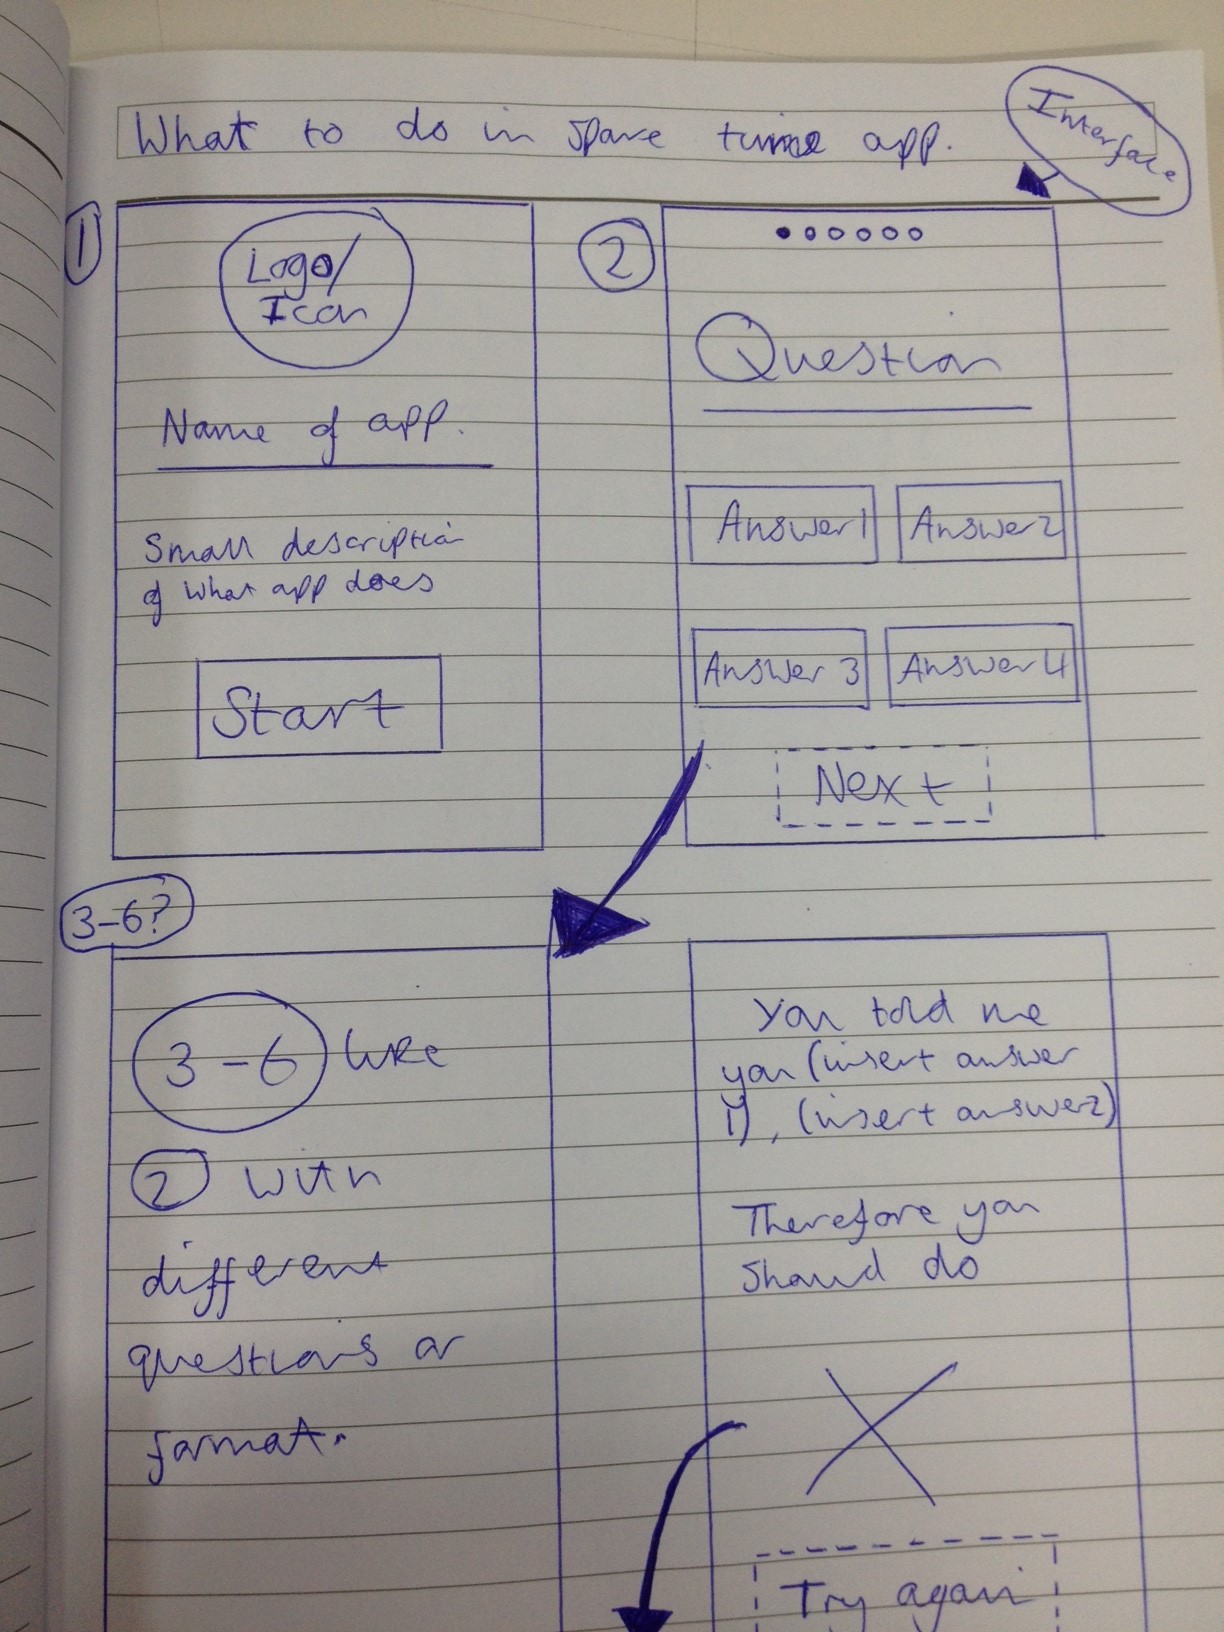 What to do in spare time app.
Interface
1
Logo/
Icon
Name of app.
Small description
of what app does
Start
2
Question
Answer 1
Answer 2
Answer 3
Answer 4
Next
3-6?
3-6 like
2 with
different
questions or
format.
You told me
you (insert answer
1), (insert answer2)
Therefore you
should do
X
Try again